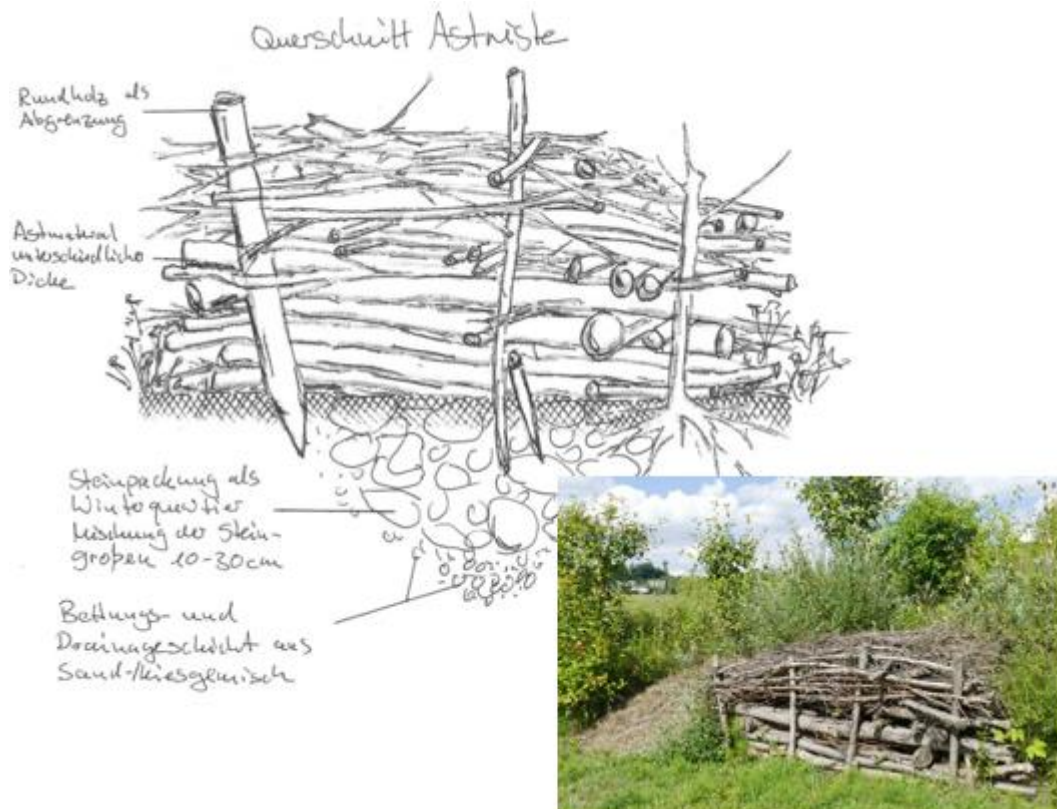 Querschnitt Astniste
Rundholz als
Abgrenzung
Astmaterial
unterschiedliche
Dicke
Steinpackung als
Winterquartier
Mischung der Stein-
größen 10-30cm
Bettungs- und
Drainageschicht aus
Sand-/Kiesgemisch